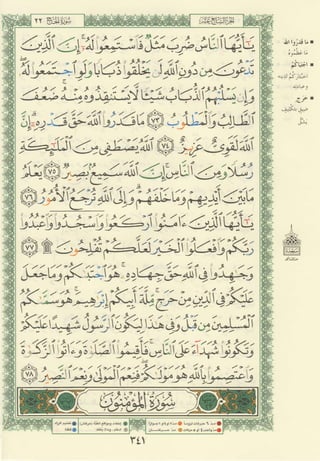 سُورَةُ الحَجِّ ٢٢
يَٰٓأَيُّهَا ٱلنَّاسُ ضُرِبَ مَثَلٌ فَٱسْتَمِعُوا۟ لَهُۥٓ ۚ إِنَّ ٱلَّذِينَ
تَدْعُونَ مِن دُونِ ٱللَّهِ لَن يَخْلُقُوا۟ ذُبَابًا وَلَوِ ٱجْتَمَعُوا۟ لَهُۥ ۖ
وَإِن يَسْلُبْهُمُ ٱلذُّبَابُ شَيْـًٔا لَّا يَسْتَنقِذُوهُ مِنْهُ ۚ ضَعُفَ
ٱلطَّالِبُ وَٱلْمَطْلُوبُ ٧٣ مَا قَدَرُوا۟ ٱللَّهَ حَقَّ قَدْرِهِۦٓ ۗ إِنَّ
ٱللَّهَ لَقَوِىٌّ عَزِيزٌ ٧٤ ٱللَّهُ يَصْطَفِى مِنَ ٱلْمَلَٰٓئِكَةِ
رُسُلًا وَمِنَ ٱلنَّاسِ ۚ إِنَّ ٱللَّهَ سَمِيعٌۢ بَصِيرٌ ٧٥ يَعْلَمُ
مَا بَيْنَ أَيْدِيهِمْ وَمَا خَلْفَهُمْ ۗ وَإِلَى ٱللَّهِ تُرْجَعُ ٱلْأُمُورُ ٧٦
يَٰٓأَيُّهَا ٱلَّذِينَ ءَامَنُوا۟ ٱرْكَعُوا۟ وَٱسْجُدُوا۟ وَٱعْبُدُوا۟
رَبَّكُمْ وَٱفْعَلُوا۟ ٱلْخَيْرَ لَعَلَّكُمْ تُفْلِحُونَ ۩ ٧٧
وَجَٰهِدُوا۟ فِى ٱللَّهِ حَقَّ جِهَادِهِۦ ۚ هُوَ ٱجْتَبَىٰكُمْ وَمَا جَعَلَ
عَلَيْكُمْ فِى ٱلدِّينِ مِنْ حَرَجٍ ۚ مِّلَّةَ أَبِيكُمْ إِبْرَٰهِيمَ ۚ هُوَ سَمَّىٰكُمُ
ٱلْمُسْلِمِينَ مِن قَبْلُ وَفِى هَٰذَا لِيَكُونَ ٱلرَّسُولُ شَهِيدًا عَلَيْكُمْ
وَتَكُونُوا۟ شُهَدَآءَ عَلَى ٱلنَّاسِ ۚ فَأَقِيمُوا۟ ٱلصَّلَوٰةَ وَءَاتُوا۟ ٱلزَّكَوٰةَ
وَٱعْتَصِمُوا۟ بِٱللَّهِ هُوَ مَوْلَىٰكُمْ ۖ فَنِعْمَ ٱلْمَوْلَىٰ وَنِعْمَ ٱلنَّصِيرُ ٧٨
سُورَةُ المُؤْمِنُونَ
ما قدروا الله
ما عظّموه
اجتباكم
حرج
٣٤١